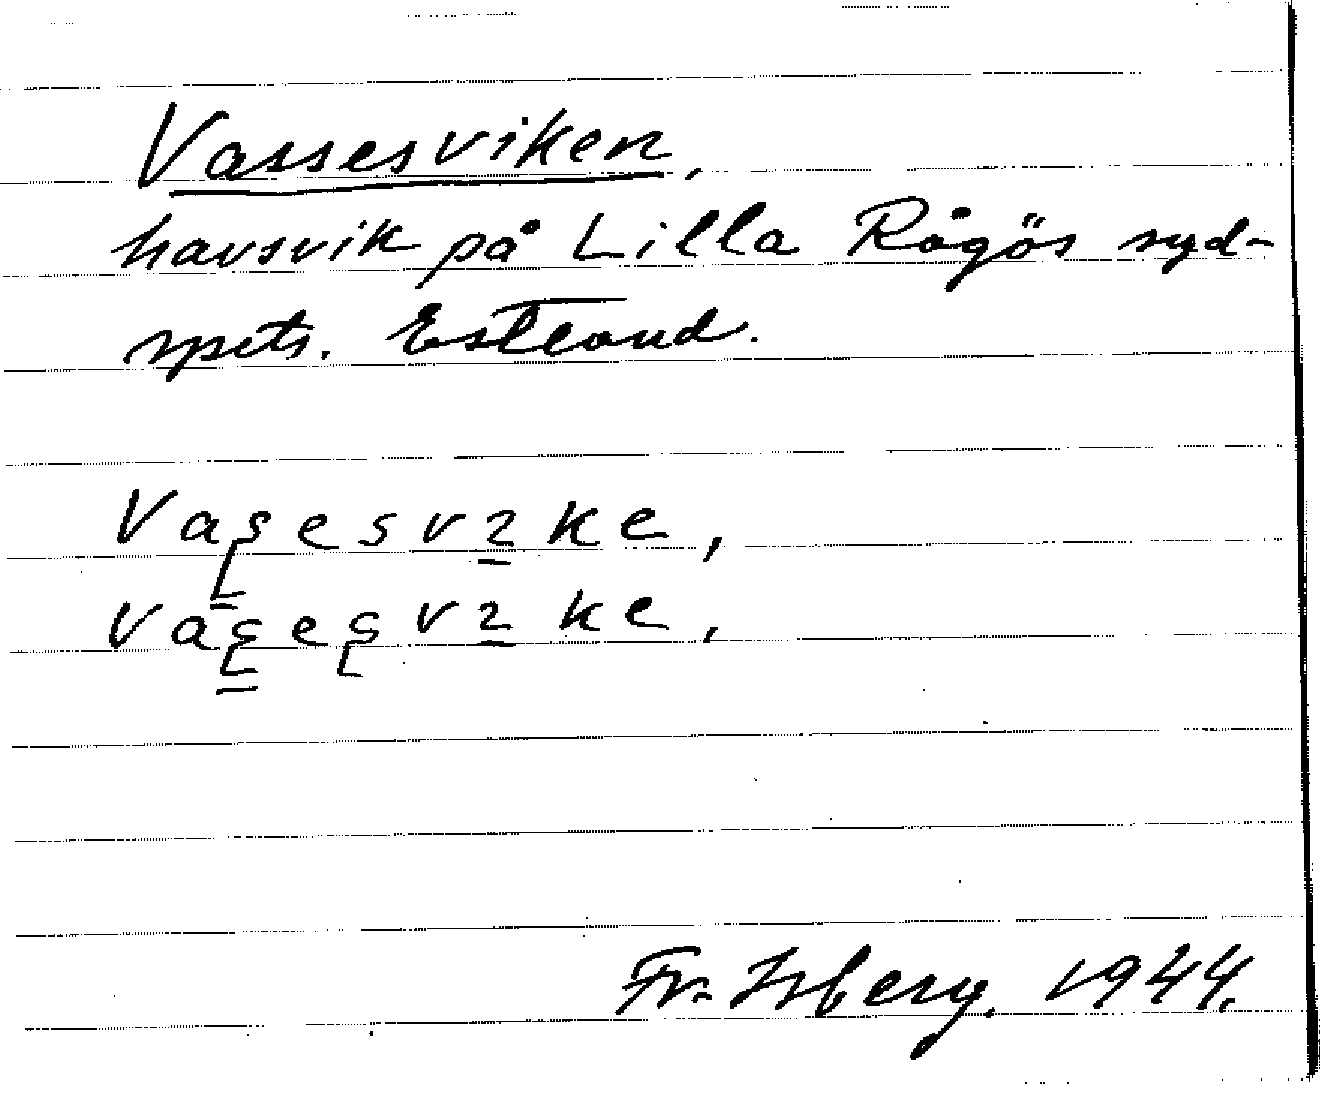 Vassesviken,
havsvik på Lilla Rågös syd-
spets. Estland.
Vasesvike,
vasesvike,
Fr. Isberg. 1944.